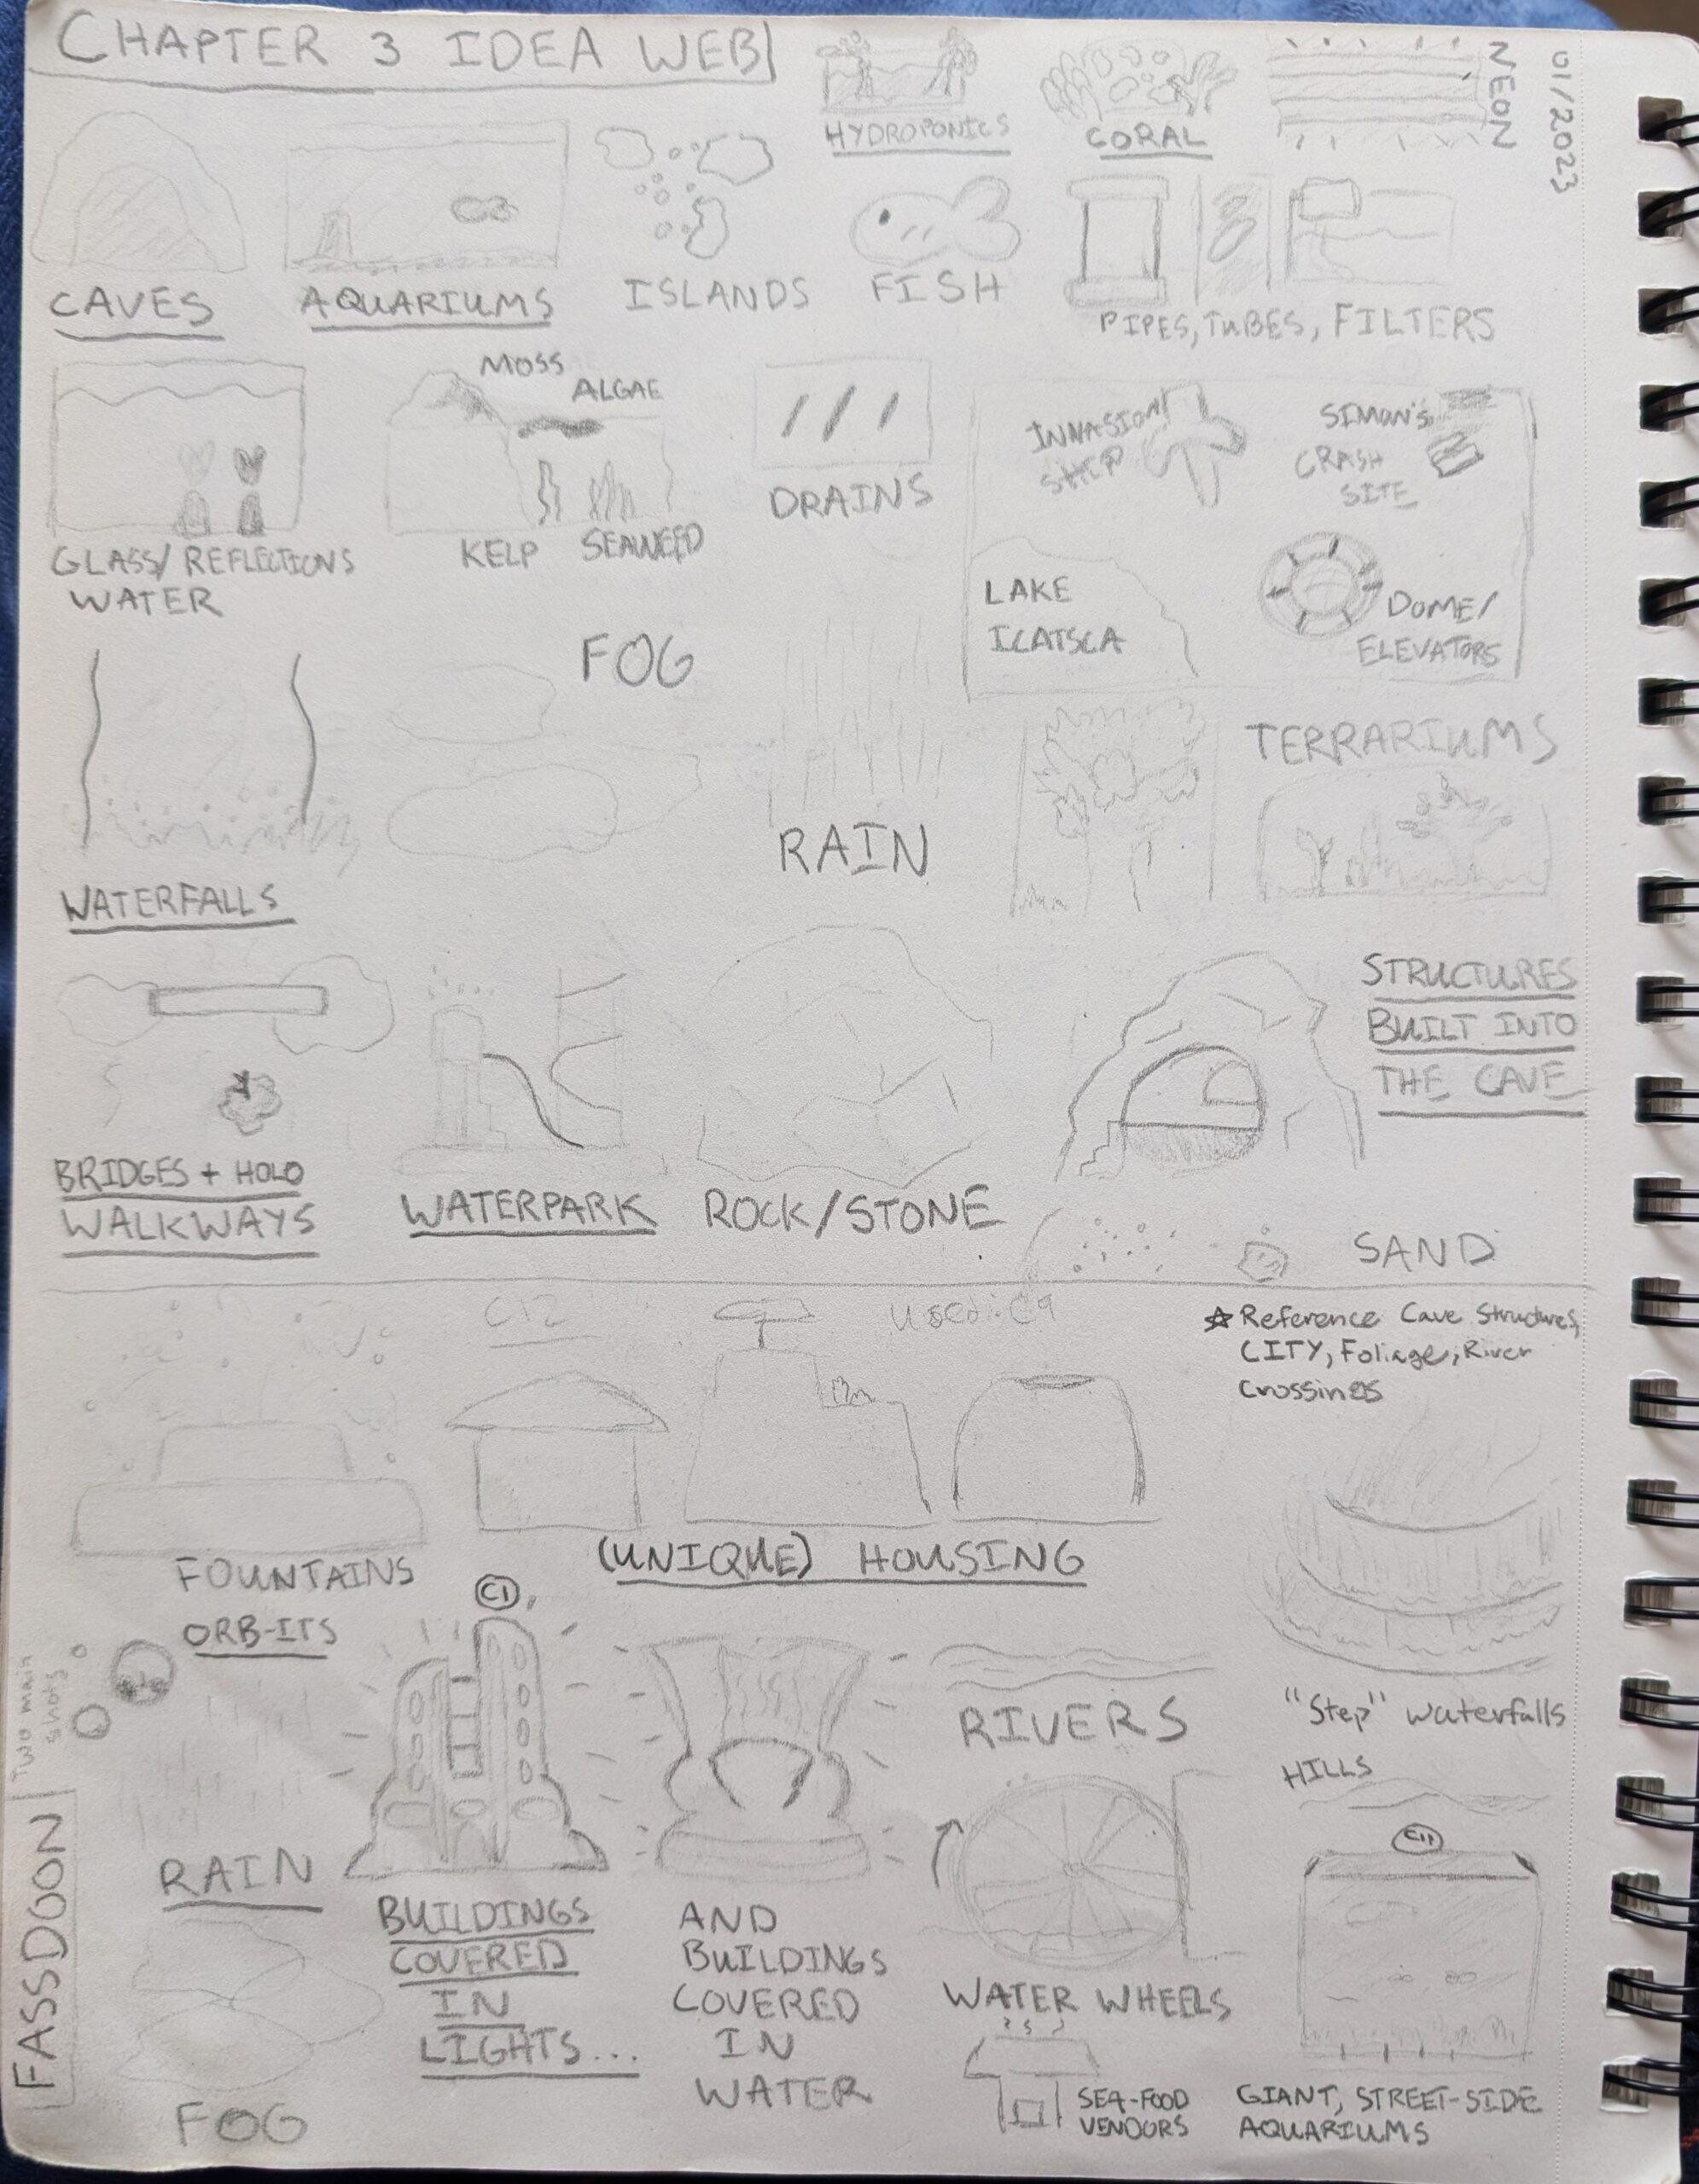 CHAPTER 3 IDEA WEB
01/2023
NEON
HYDROPONICS
CORAL
CAVES
AQUARIUMS
ISLANDS
FISH
PIPES, TUBES, FILTERS
MOSS
ALGAE
GLASS/REFLECTIONS
WATER
KELP
SEAWEED
DRAINS
INVASION
SHIP
SIMON'S
CRASH
SITE
LAKE
ICATSCA
DOME/
ELEVATORS
FOG
RAIN
TERRARIUMS
WATERFALLS
BRIDGES + HOLO
WALKWAYS
WATERPARK
ROCK/STONE
STRUCTURES
BUILT INTO
THE CAVE
SAND
C12
Used: C9
☆ Reference Cave Structures,
CITY, Foliage, River
Crossings
FOUNTAINS
ORB-ITS
(UNIQUE) HOUSING
"Step" Waterfalls
Two main
shots
FASSDOON
C1
RAIN
FOG
BUILDINGS
COVERED
IN
LIGHTS...
AND
BUILDINGS
COVERED
IN
WATER
RIVERS
WATER WHEELS
SEA-FOOD
VENDORS
HILLS
C11
GIANT, STREET-SIDE
AQUARIUMS